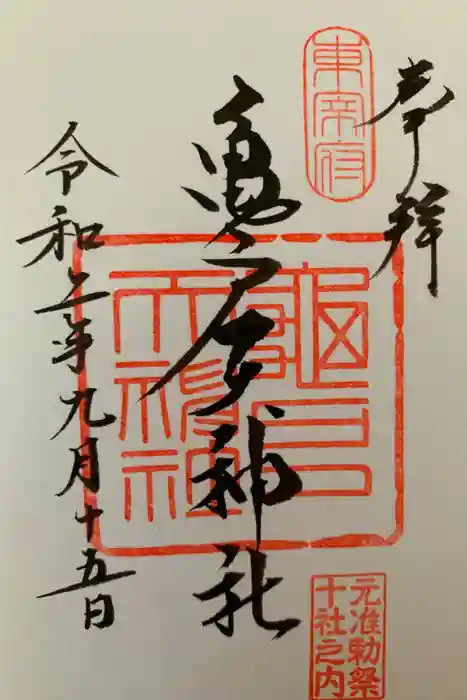 奉拝
東宰府
亀戸天神社
龜戸
天神社
令和二年九月十五日
元准勅祭
十社之内